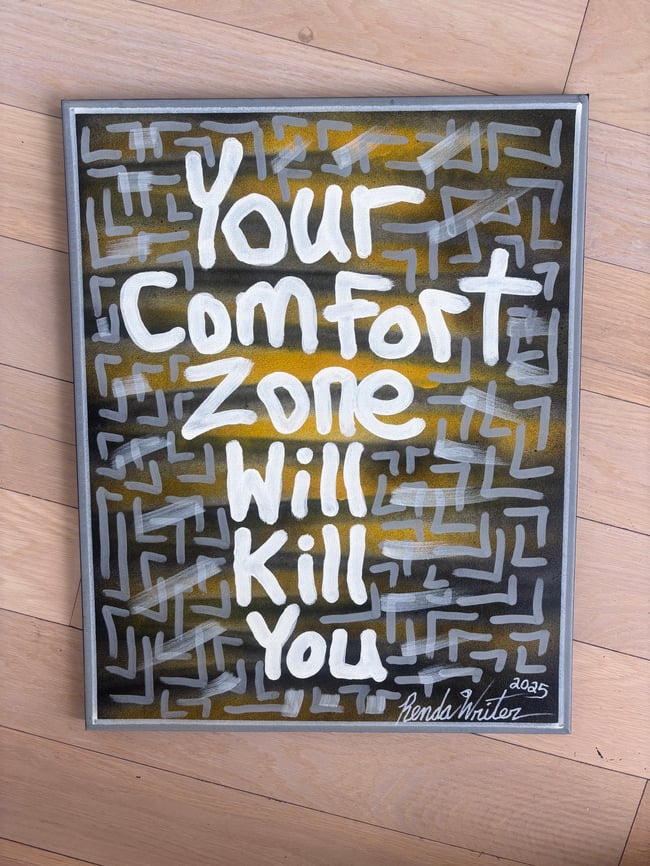 Your
Comfort
Zone
Will
Kill
You
2025
Renda Writer